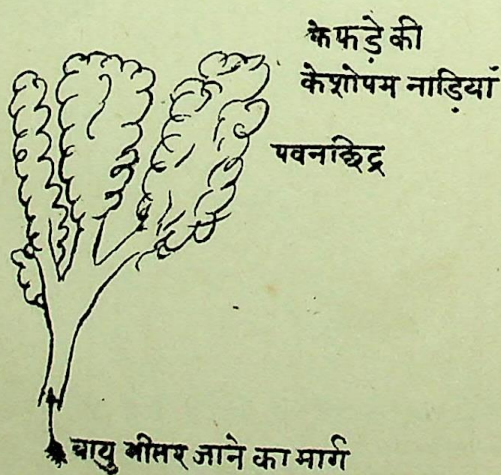 फेफड़े की
केशोपम नाड़ियां
पवनछिद्र
वायु भीतर जाने का मार्ग